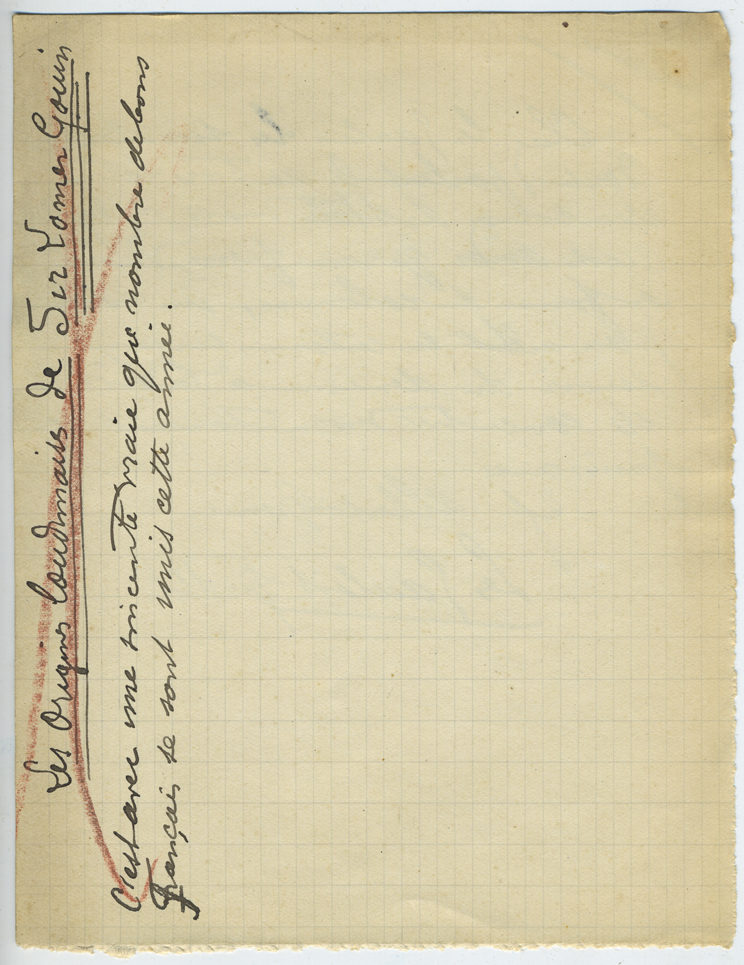 Les Origines Loudunaises de Sir Lomer Gouin
C'est avec une sincérité vraie que nombre de bons
Français se sont unis cette année.